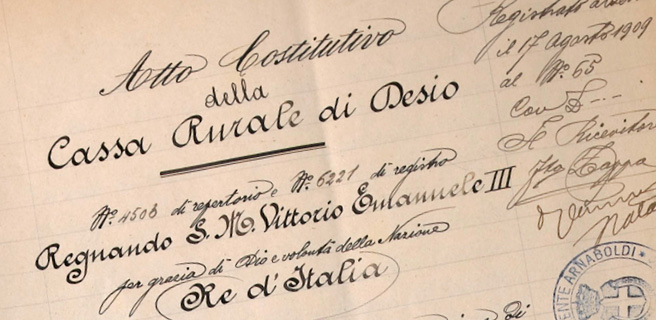 Atto Costitutivo
della
Cassa Rurale di Desio
N.° 4508 di repertorio e N.° 6221 di registro
Regnando S. M. Vittorio Emanuele III
per grazia di Dio e volontà della Nazione
Re d'Italia
di
Registrato
il 17 Agosto 1909
al N.° 65
Con £
Il Ricevitor
Zappa
ENTE ARNABOLDI